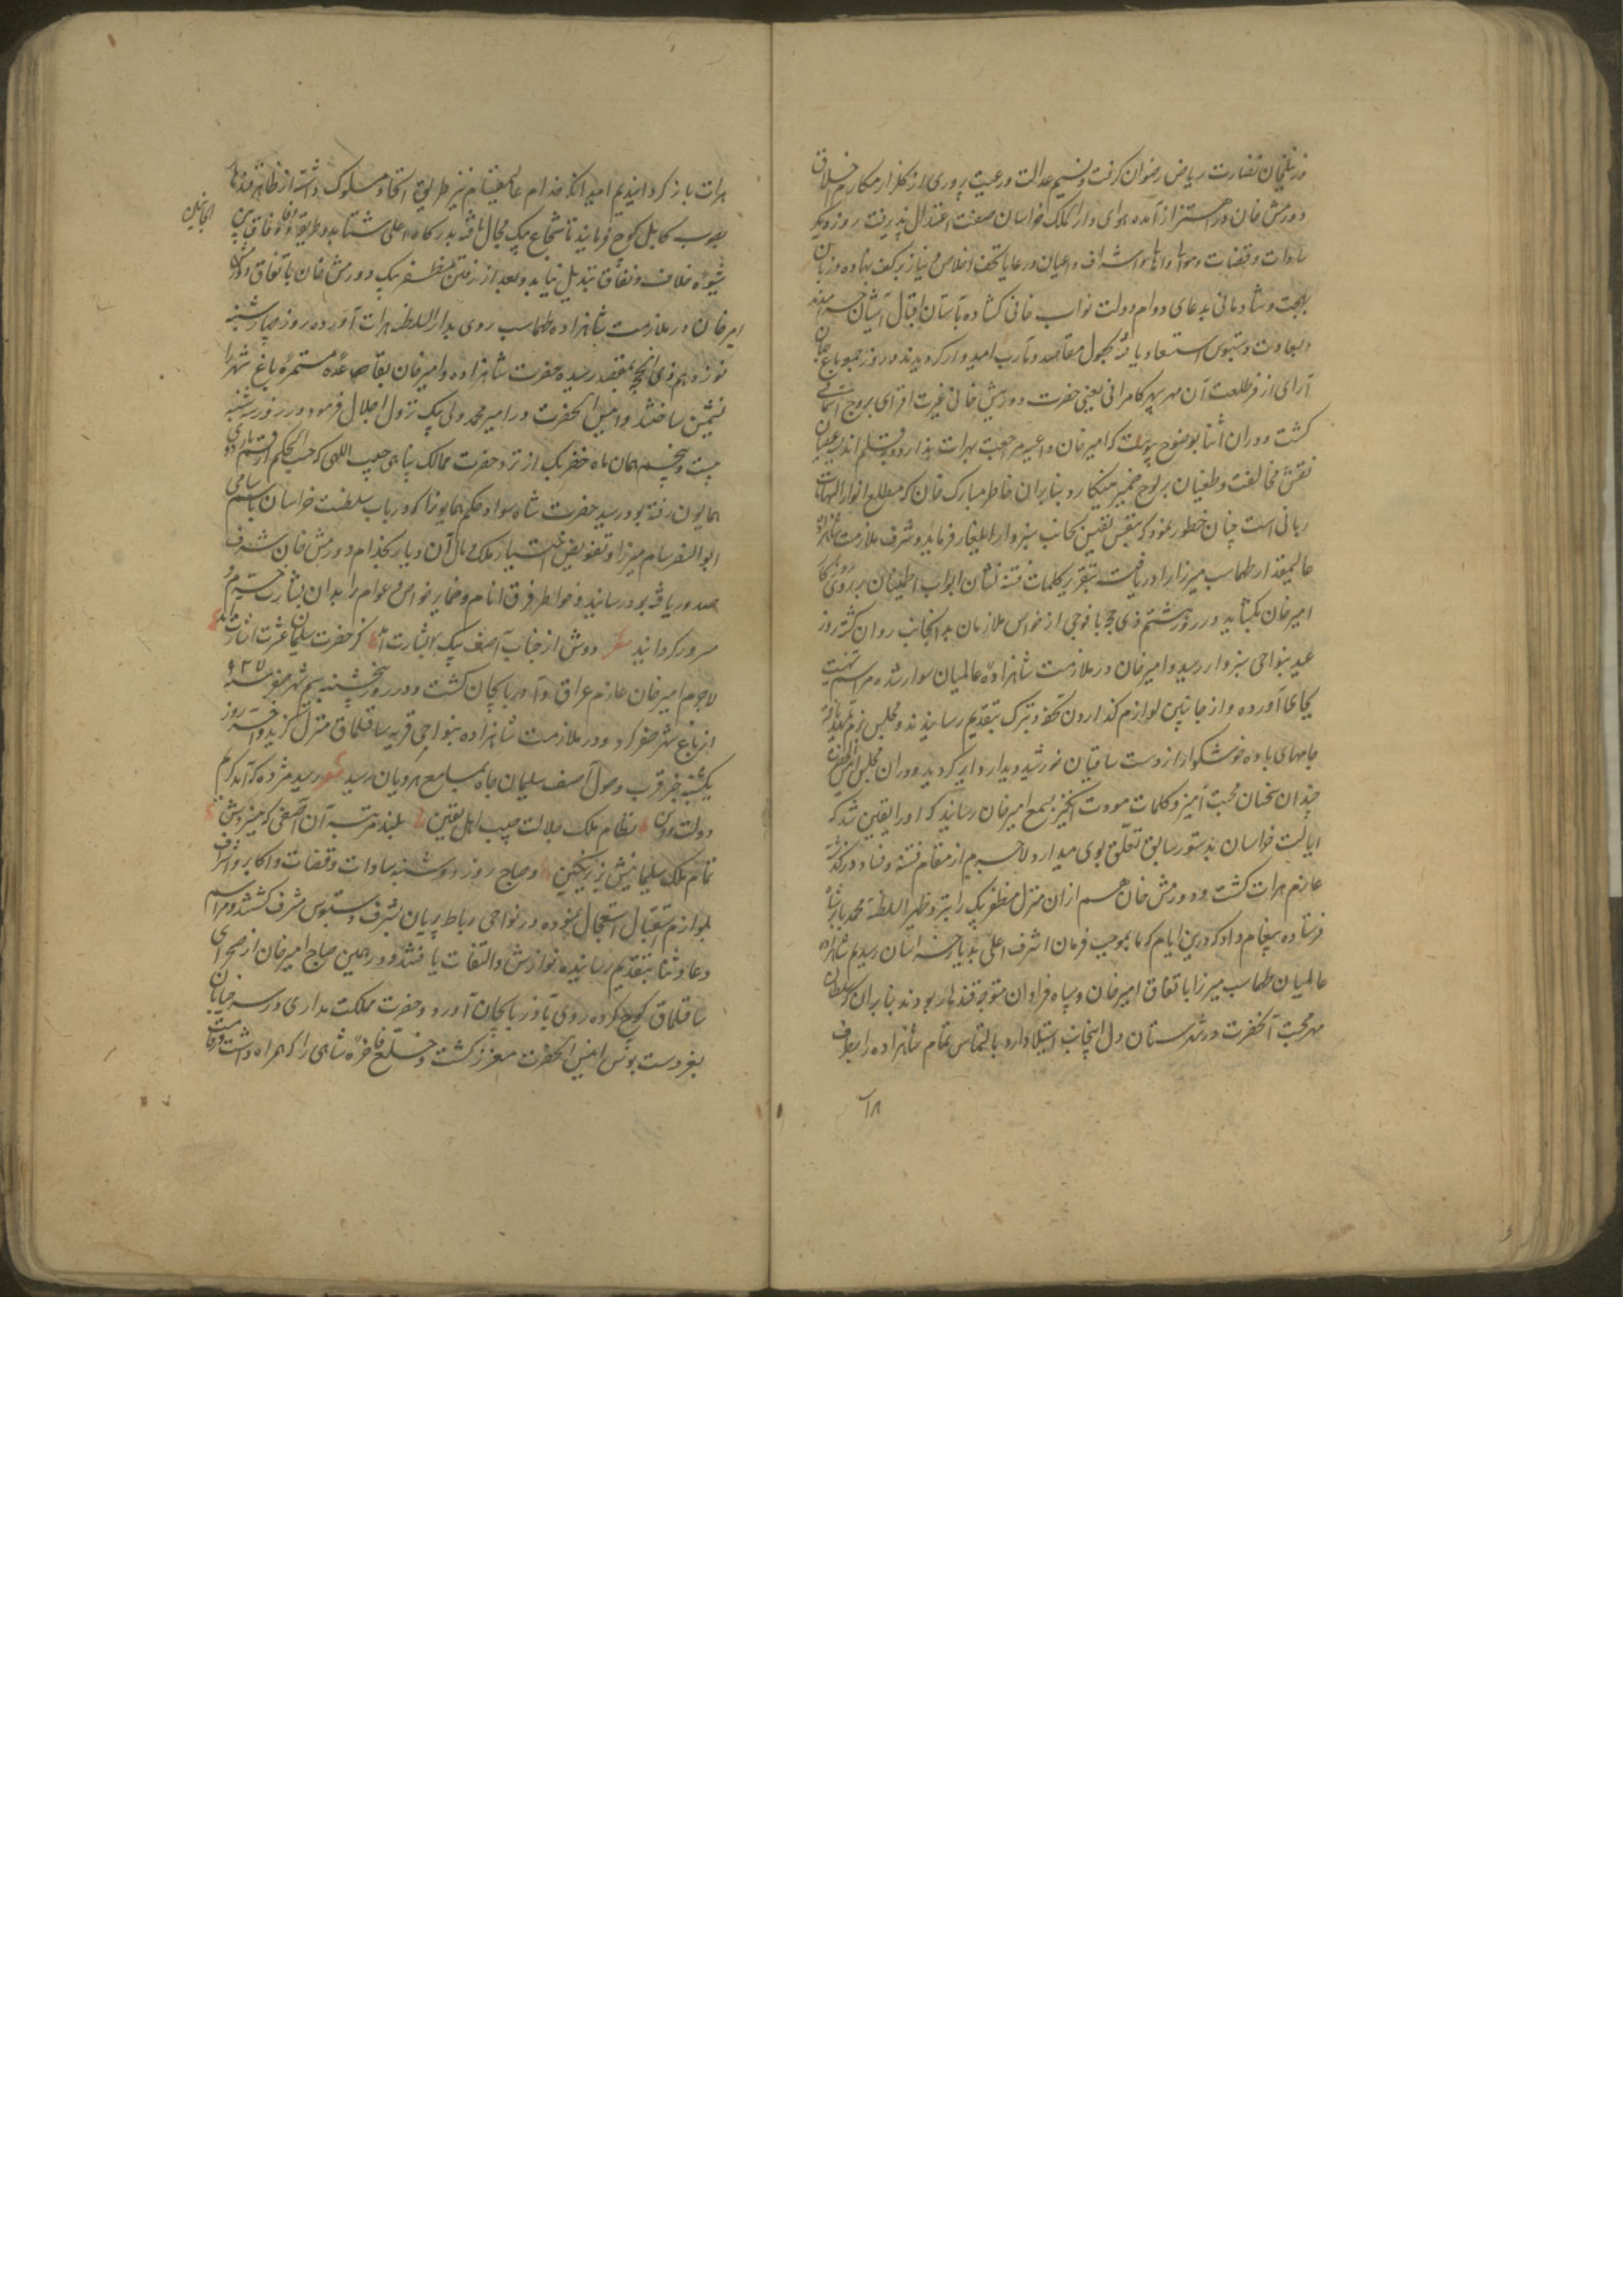 فرغلیجان نضارت ریاض رضوان گرفت و نسیم عدالت و رعیت پروری از گلزار مکارم اخلاق
دورمش خان در اهتزاز آمده هوای دار الملک خراسان صفت اعتدال پذیرفت روز دیگر
سادات و قضات و موالی و اهالی و اشراف و اعیان و رعایا تحف اخلاص و نیاز بر کف نهاده و زبان
بهجت و شادمانی بدعای دوام دولت نواب خانی کشاده بآستان اقبال آشیان
و بسعادت دستبوس استسعاد یافته بحصول مقاصد و مآرب امیدوار کردیدند و روز جمعه باغ جهان
آرای از فر طلعت آن مهر سپهر کامرانی یعنی حضرت دورمش خانی غیرت افزای بروج آسمانی
کشت و در ان اثنا بوضوح پیوست که امیر خان داعیه مراجعت بهرات ندارد و بقلم اندیشه عصیان
نقش مخالفت و طغیان بر لوح ضمیر مینکارد بنابران خاطر مبارک خان که مطلع انوار الهامات
ربانی است چنان خطور نمود که بنفس نفیس بجانب سبزوار ایلغار فرماید و شرف ملازمت شاهزاده
عالیمقدار طهماسب میرزا را دریافت بتقریر کلمات فتنه نشان ابواب اطمینان بر روی روزگار
امیر خان بکشاید و در روز هشتم ذی حجه با فوجی از خواص ملازمان بدانجانب روان کشته روز
عید بنواحی سبزوار رسید و امیر خان در ملازمت شاهزاده عالمیان سوار شده مراسم تهنیت
بجای آورده و از جانبین لوازم گذارون تحفه و تبرک بتقدیم رسانیدند و مجلس بزم تمهید یافته
جامهای باده خوشکوار از دست ساقیان خورشید دیدار دایر کردید و در ان مجلس آنحضرت
چندان سخنان محبت آمیز و کلمات مودت انکیز بسمع امیر خان رسانید که او را یقین شد که
ایالت خراسان بدستور سابق تعلق بوی میدارد لاجرم از مقام فتنه و فساد در گذشته
عازم هرات کشت و دورمش خان هم از ان منزل مظفر بیک را نزد ظهیر السلطنه محمد بابر پادشاه
فرستاده پیغام داد که درین ایام که ما بموجب فرمان اشرف اعلی بدیار خراسان رسیدیم شاهزاده
عالمیان طهماسب میرزا باتفاق امیر خان و سپاه فراوان متوجه قندهار بودند بنابران که سلطان
مهر محبت آنحضرت در شهرستان دل اینجانب استیلا دارد بالتماس تمام شاهزاده را بطرف
هرات باز کردانیدیم امید آنکه خدام عالیمقام نیز طریق اتحاد مسلوک داشته از ظاهر قندهار
بصوب کابل کوچ فرمایند تا شجاع بیک مجال یافته بدرکاه اعلی شتابد و طریقه وفا و وفاق
ایجانبین
بشیوه خلاف و نفاق تبدیل نیابد و بعد از رفتن مظفر بیک دورمش خان باتفاق
امیر خان در ملازمت شاهزاده طهماسب روی بدار السلطنه هرات آورده روز چهارشنبه
نوزدهم ذی الحجه بمقصد رسیده حضرت شاهزاده و امیر خان بقاعده مستمره باغ شهر را
نشیمن ساختند و انیس الحضرت در امیر محمد ولی بیک نزول اجلال فرمود و در روز سه شنبه
بیست و پنجم همان ماه خضر بیک از نزد حضرت ممالک پناهی حبیب اللهی که حسب الحکم
همایون رفته بود رسید حضرت شاه سواد حکم همایون را که در باب سلطنت خراسان باسم سامی
ابو النصر سام میرزا و تفویض اختیار ملک و مال آن دیار بخدام دورمش خان شرف
صدور یافته بود رسانید و خواطر فرق انام و ضمایر خواص و عوام را بدان بشارت خرم و
مسرور کردانید شعر دوش از جناب آصف پیک بشارت آمد کز حضرت سلیمان عشرت اشارت آمد
لاجرم امیر خان عازم عراق و آذربایجان کشت و در روز پنجشنبه سیم شهر صفر سنه ۹۲۷
از باغ شهر سفر کرد و در ملازمت شاهزاده بنواحی قریه ساقلماق منزل کزید و آخر روز
یکشنبه خبر قرب وصول آصف سلیمان جاه بمسامع هرویان رسید شعر رسید مژده که آمد کریم
دولت و دین نظام ملک جلالت حبیب اهل یقین بلند مرتبه آن آصفی که میزیبدش
تمام ملک سلیمانیش بزیر نکین و صباح روز دوشنبه سادات و قضات و اکابر و اشراف
بلوازم استقبال استعجال نموده در نواحی رباط پریان بشرف دستبوس مشرف کشتند و مراسم
دعا و ثنا بتقدیم رسانیده نوازش و التفات یافتند و در همین صباح امیر خان از صحرای
ساقلماق کوچ کرده روی بآذربایجان آورد و حضرت مملکت مداری در سر خیابان
بعز دست بوس انیس الحضرت معزز کشت و خلع فاخره شاهی را که همراه داشت